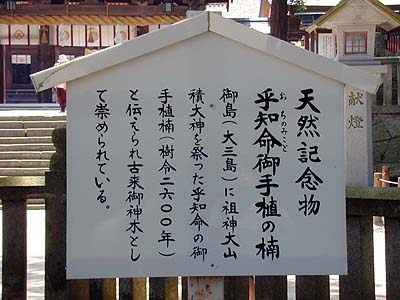 天然記念物
乎知命御手植の楠
おちのみこと
御島（大三島）に祖神大山
積大神を祭った乎知命の御
手植楠（樹令二六〇〇年）
と伝えられ古来御神木とし
て崇められている。
献燈